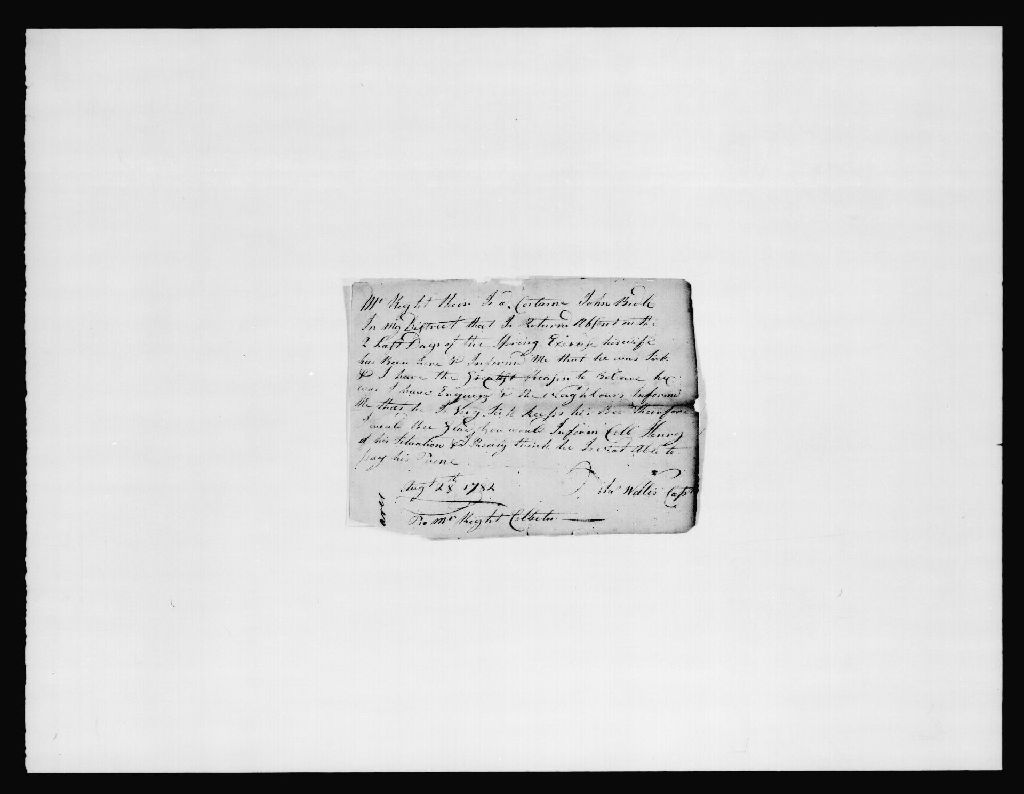 Mr Right there Is a Certane John Buck
In my District that Is Returnd Absent on the
2 Last Days of the Spring Exersise his wife
has Been here & Informd Me that he was Sick
& I have the Greatest Reason to Beleave he
was I have Enquiry & the Neighbours Informd
Me that he Is Very Sick Keeps his Bed Therefore
I would Bee Glad you would Inform Coll Henry
of his Situation & I Realy think he Is not Able to
pay his Fine
Augt 28th 1782
Wallis Capt
To Mr Right Collector
over